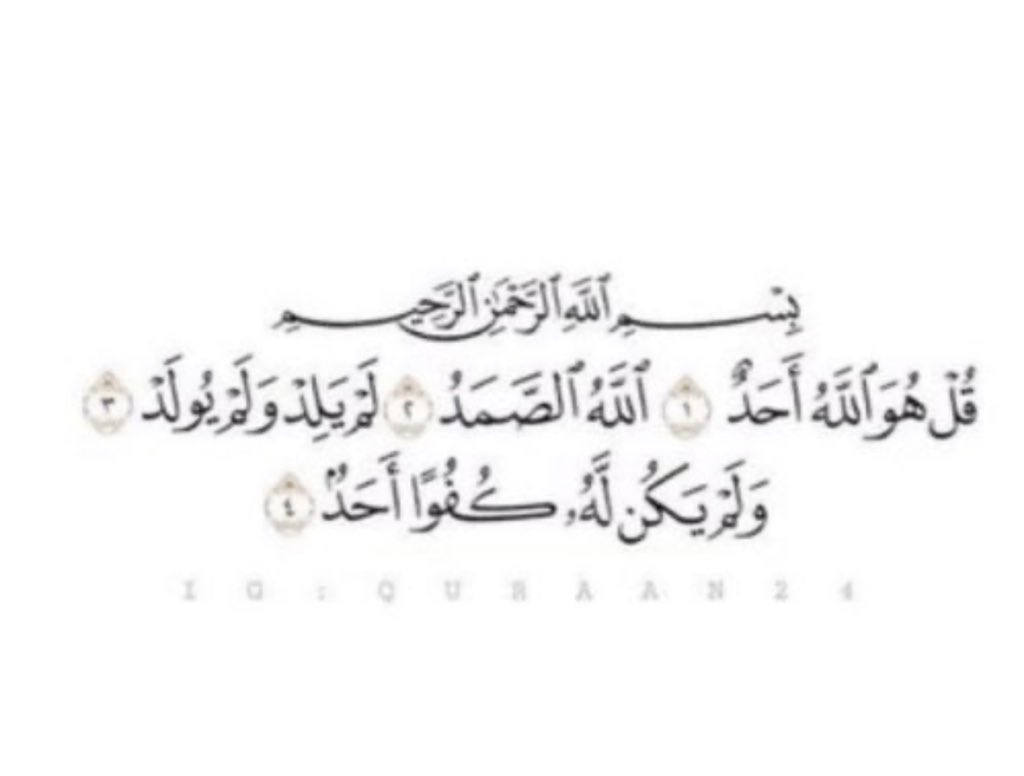 بِسْمِ ٱللَّهِ ٱلرَّحْمَٰنِ ٱلرَّحِيمِ
قُلْ هُوَ ٱللَّهُ أَحَدٌ ١ ٱللَّهُ ٱلصَّمَدُ ٢ لَمْ يَلِدْ وَلَمْ يُولَدْ ٣
وَلَمْ يَكُن لَّهُۥ كُفُوًا أَحَدٌۢ ٤
IG:QURAAN24